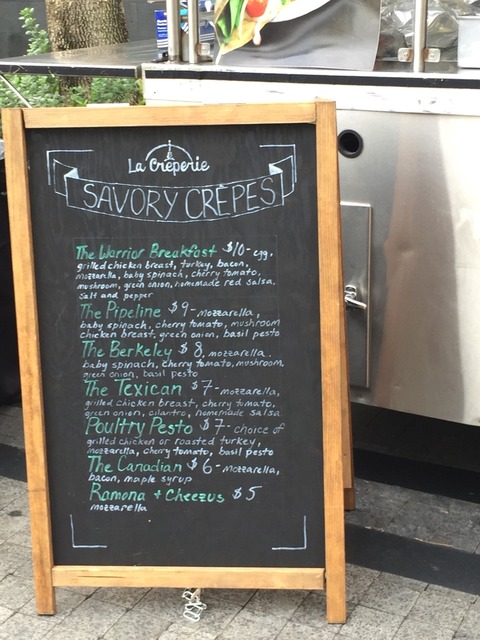 La Crêperie
SAVORY CRÊPES
The Warrior Breakfast $10 - egg,
grilled chicken breast, turkey, bacon,
mozzarella, baby spinach, cherry tomato,
mushroom, green onion, homemade red salsa.
salt and pepper
The Pipeline $9 - mozzarella,
baby spinach, cherry tomato, mushroom
chicken breast, green onion, basil pesto
The Berkeley $8, mozzarella.
baby spinach, cherry tomato, mushroom,
green onion, basil pesto
The Texican $7 - mozzarella,
grilled chicken breast, cherry tomato,
green onion, cilantro, homemade salsa
Poultry Pesto $7 - choice of
grilled chicken or roasted turkey,
mozzarella, cherry tomato, basil pesto
The Canadian $6 - mozzarella,
bacon, maple syrup
Ramona + Cheezus $5
mozzarella